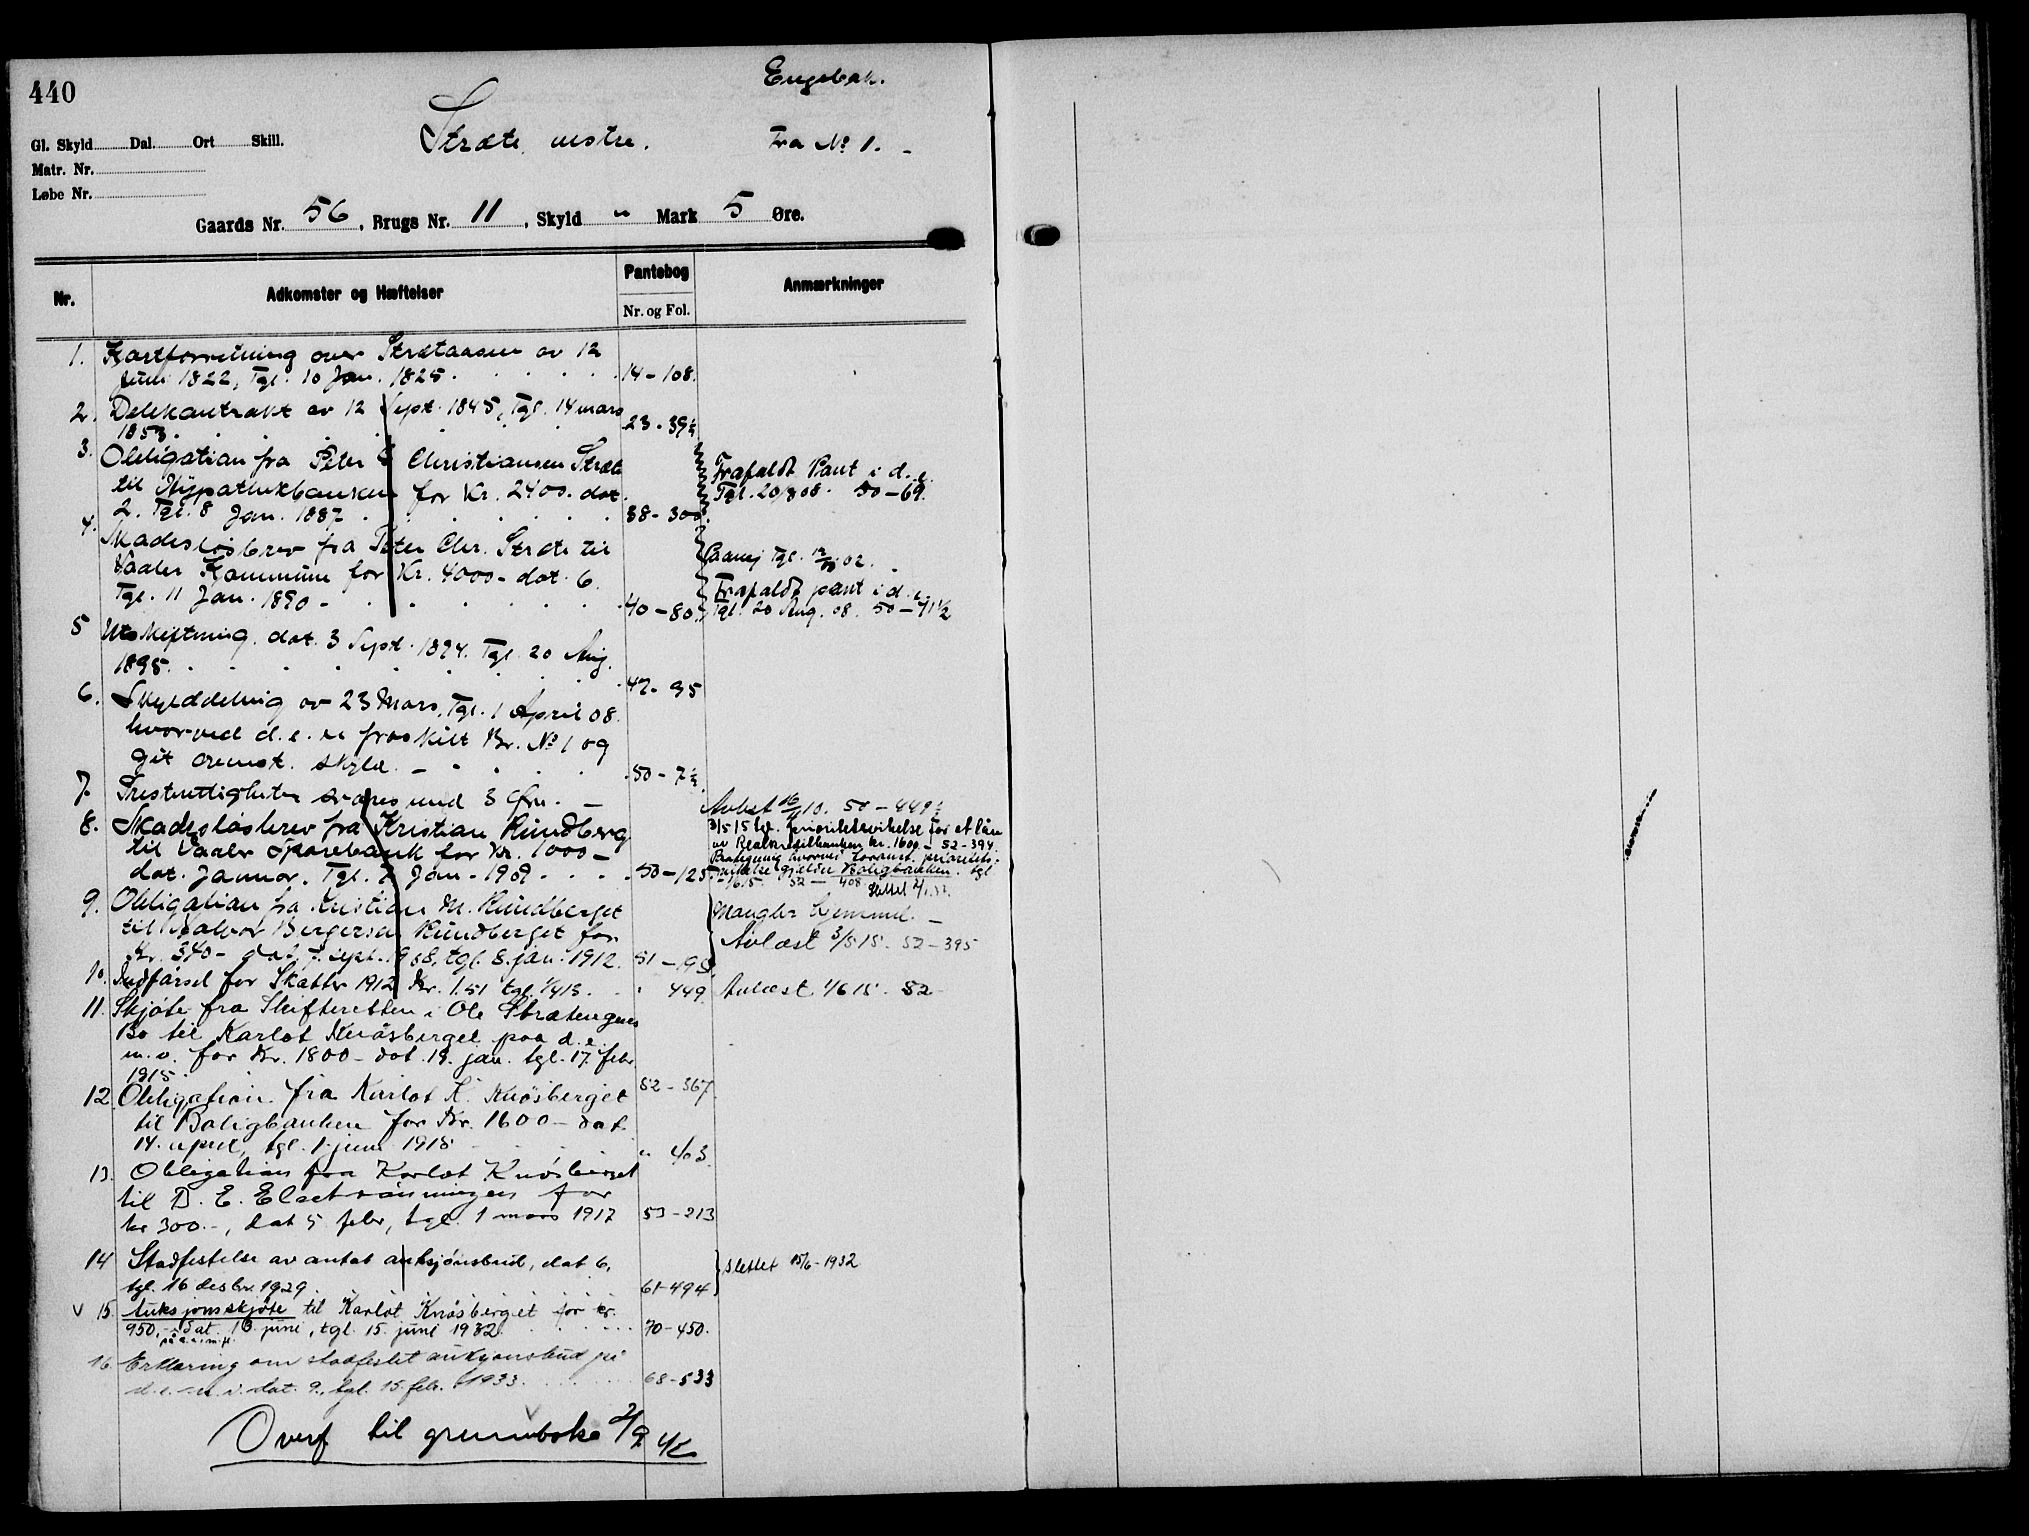 440
Engebak.
Stræte vestre. Fra No 1. -
Gl. Skyld Dal. Ort Skill.
Matr. Nr.
Løbe Nr.
Gaards Nr. 56, Brugs Nr. 11, Skyld " Mark 5 Øre.
Nr. Adkomster og Hæftelser Pantebog Anmærkninger
Nr. og Fol.
1. Kartforretning over Strætaasen av 12
Juni 1822, Tgl. 10 Jan. 1825. 14-108.
2. Delekontrakt av 12 Sept. 1845, Tgl. 14 mars
1853. 23-39½
3. Obligation fra Peter Christiansen Stræte
til Hypothekbanken for Kr. 2400. dat.
2. Tgl. 8 Jan. 1887. 38-300.
Frafaldt Pant i d.e.
Tgl. 20/8 08. 50-69.
4. Skadesløsbrev fra Peter Chr. Stræte til
Vaaler Kommune for Kr. 4000- dat. 6.
Tgl. 11 Jan. 1890 - 40-80.
Tgl. 12/ 02.
Frafaldt pant i d.e.
Tgl. 20 Aug. 08. 50-71½
5 Utskiftning. dat. 3 Sept. 1894. Tgl. 20 Aug.
1895. 47-95
6. Skylddeling av 23 Mars, Tgl. 1 April 08.
hvorved d.e. er fraskilt Br. No 1 og
git ovenst. skyld. - 50-7½
7. Presterettigheter svares med 3 Øre. -
8. Skadesløsbrev fra Kristian Rundberg
til Vaaler Sparebank for Kr. 1000-
dat. Januar. Tgl. 7 Jan. 1909. 50-125.
Avlæst 16/11 10. 50-449½
3/5 15 tgl. prioritetsvikelse for et laan
av Realkreditbanken kr. 1600. - 52-394.
Paategning hvorved foranst. prioritets-
vikelse gjælder Boligbanken. tgl.
1/6 15. 52-408
9. Obligation fra Kristian M. Rundberget
til Halvor Bergersen Rundberget for
Kr. 340- dat. 7. sept. 1908, tgl. 8. jan. 1912. 51-98.
Mangler hjemmel. -
Avlæst 3/5 15. 52-395
10. Utførsel for Skatter 1912 Kr. 1.51 tgl. 1/4 13. " 449.
Avlæst 1/6 15. 52-
11. Skjøte fra Skifteretten i Ole Strætengens
Bo til Karlot Knøsberget paa d.e.
m.v. for Kr. 1800- dat. 19. jan. tgl. 17. febr.
1915. 52-367
12. Obligation fra Karlot K. Knøsberget
til Boligbanken for Kr. 1600- dat.
14. april, tgl. 1. juni 1915 " 403.
13. Obligation fra Karlot Knøsberget
til D. E. for
kr 300.-, dat 5 febr, tgl. 1 mars 1917 53-213
14 Stadfestelse av antat auksjonsbud, dat 6,
tgl. 16 desbr. 1929. 61-494
Slettet 15/6-1932
V 15. Auksjonsskjøte til Karlot Knøsberget for kr.
950,- dat. 13. juni, tgl. 15. juni 1932. 70-450.
på d.e. m.fl.
16 Erklæring om stadfestet auksjonsbud på
d.e. m.v. dat. 9., tgl. 15. feb. 1933. 68-533
Overf til grunnboka 2/9 42